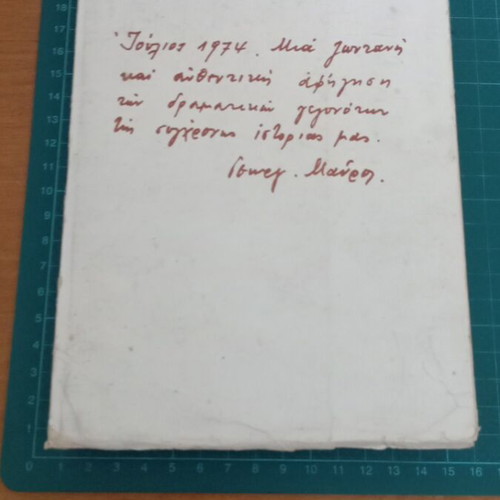 Ἰούλιος 1974. Μιά ζωντανή
καί αὐθεντική ἀφήγηση
τῶν δραματικῶν γεγονότων
τῆς συγχρόνης ἱστορίας μας.
Γεωργ. Μαῦρος.
16
15
14
13
12
11
10
9
8
7
6
5
4
3
2
1
0
0 1 2 3 4 5 6 7 8 9 10 11 12 13 14 15 16